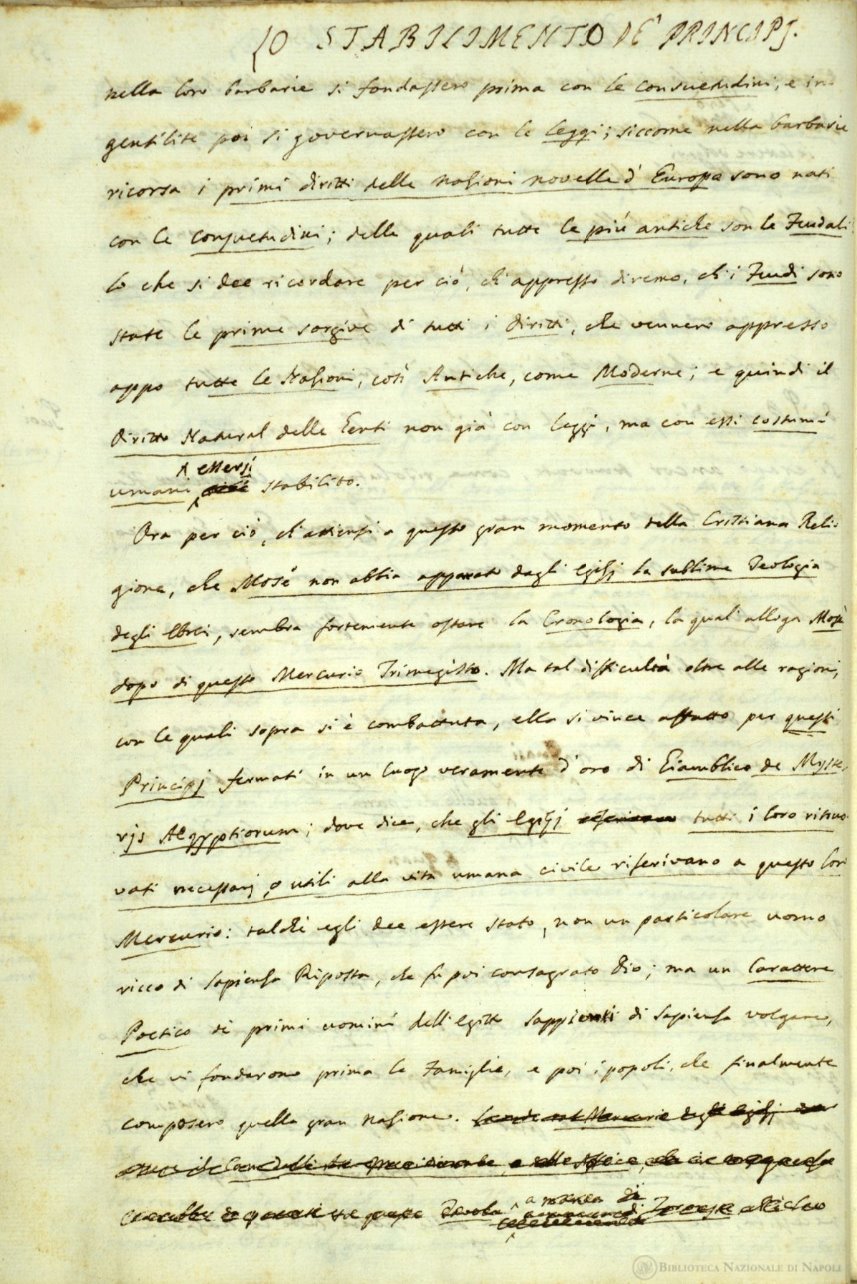 LO STABILIMENTO DE' PRINCIPJ.
nella loro barbarie si fondassero prima con le consuetudini, e in
gentilite poi si governassero con le leggi; siccome nella barbarie
ricorsa i primi diritti delle nazioni novelle d' Europa sono nati
con le consuetudini; delle quali tutte le più antiche son le Feudali
lo che si dee ricordare per ciò, ch' appresso diremo, ch' i Feudi sono
state le prime sorgive di tutti i diritti, che vennero appresso
appo tutte le Nazioni, così Antiche, come Moderne; e quindi il
diritto Natural delle Genti non già con leggi, ma con essi costumi
umani essersi stabilito.
Ora per ciò, ch' attiensi a questo gran momento della Cristiana Reli-
gione, che Mosè non abbia apparato dagli Egizj la sublime Teologia
degli Ebrei, sembra fortemente ostare la Cronologia, la qual alloga Mosè
dopo di questo Mercurio Trimegisto. Ma tal difficultà oltre alle ragioni,
con le quali sopra si è combattuta, ella si vince affatto per questi
Principj fermati in un luogo veramente d' oro di Giamblico de Myste-
rjs Aegyptiorum; dove dice, che gli Egizj tutti i loro ritruo-
vati necessarj, o utili alla vita umana civile riferivano a questo lor
Mercurio: talchè egli dee essere stato, non un particolare uomo
ricco di Sapienza Riposta, che fu poi consagrato Dio; ma un Carattere
Poetico de' primi uomini dell' Egitto sappienti di Sapienza volgare,
che vi fonderono prima le Famiglie, e poi i popoli, che finalmente
composero quella gran Nazione.
a maniera di
BIBLIOTECA NAZIONALE DI NAPOLI